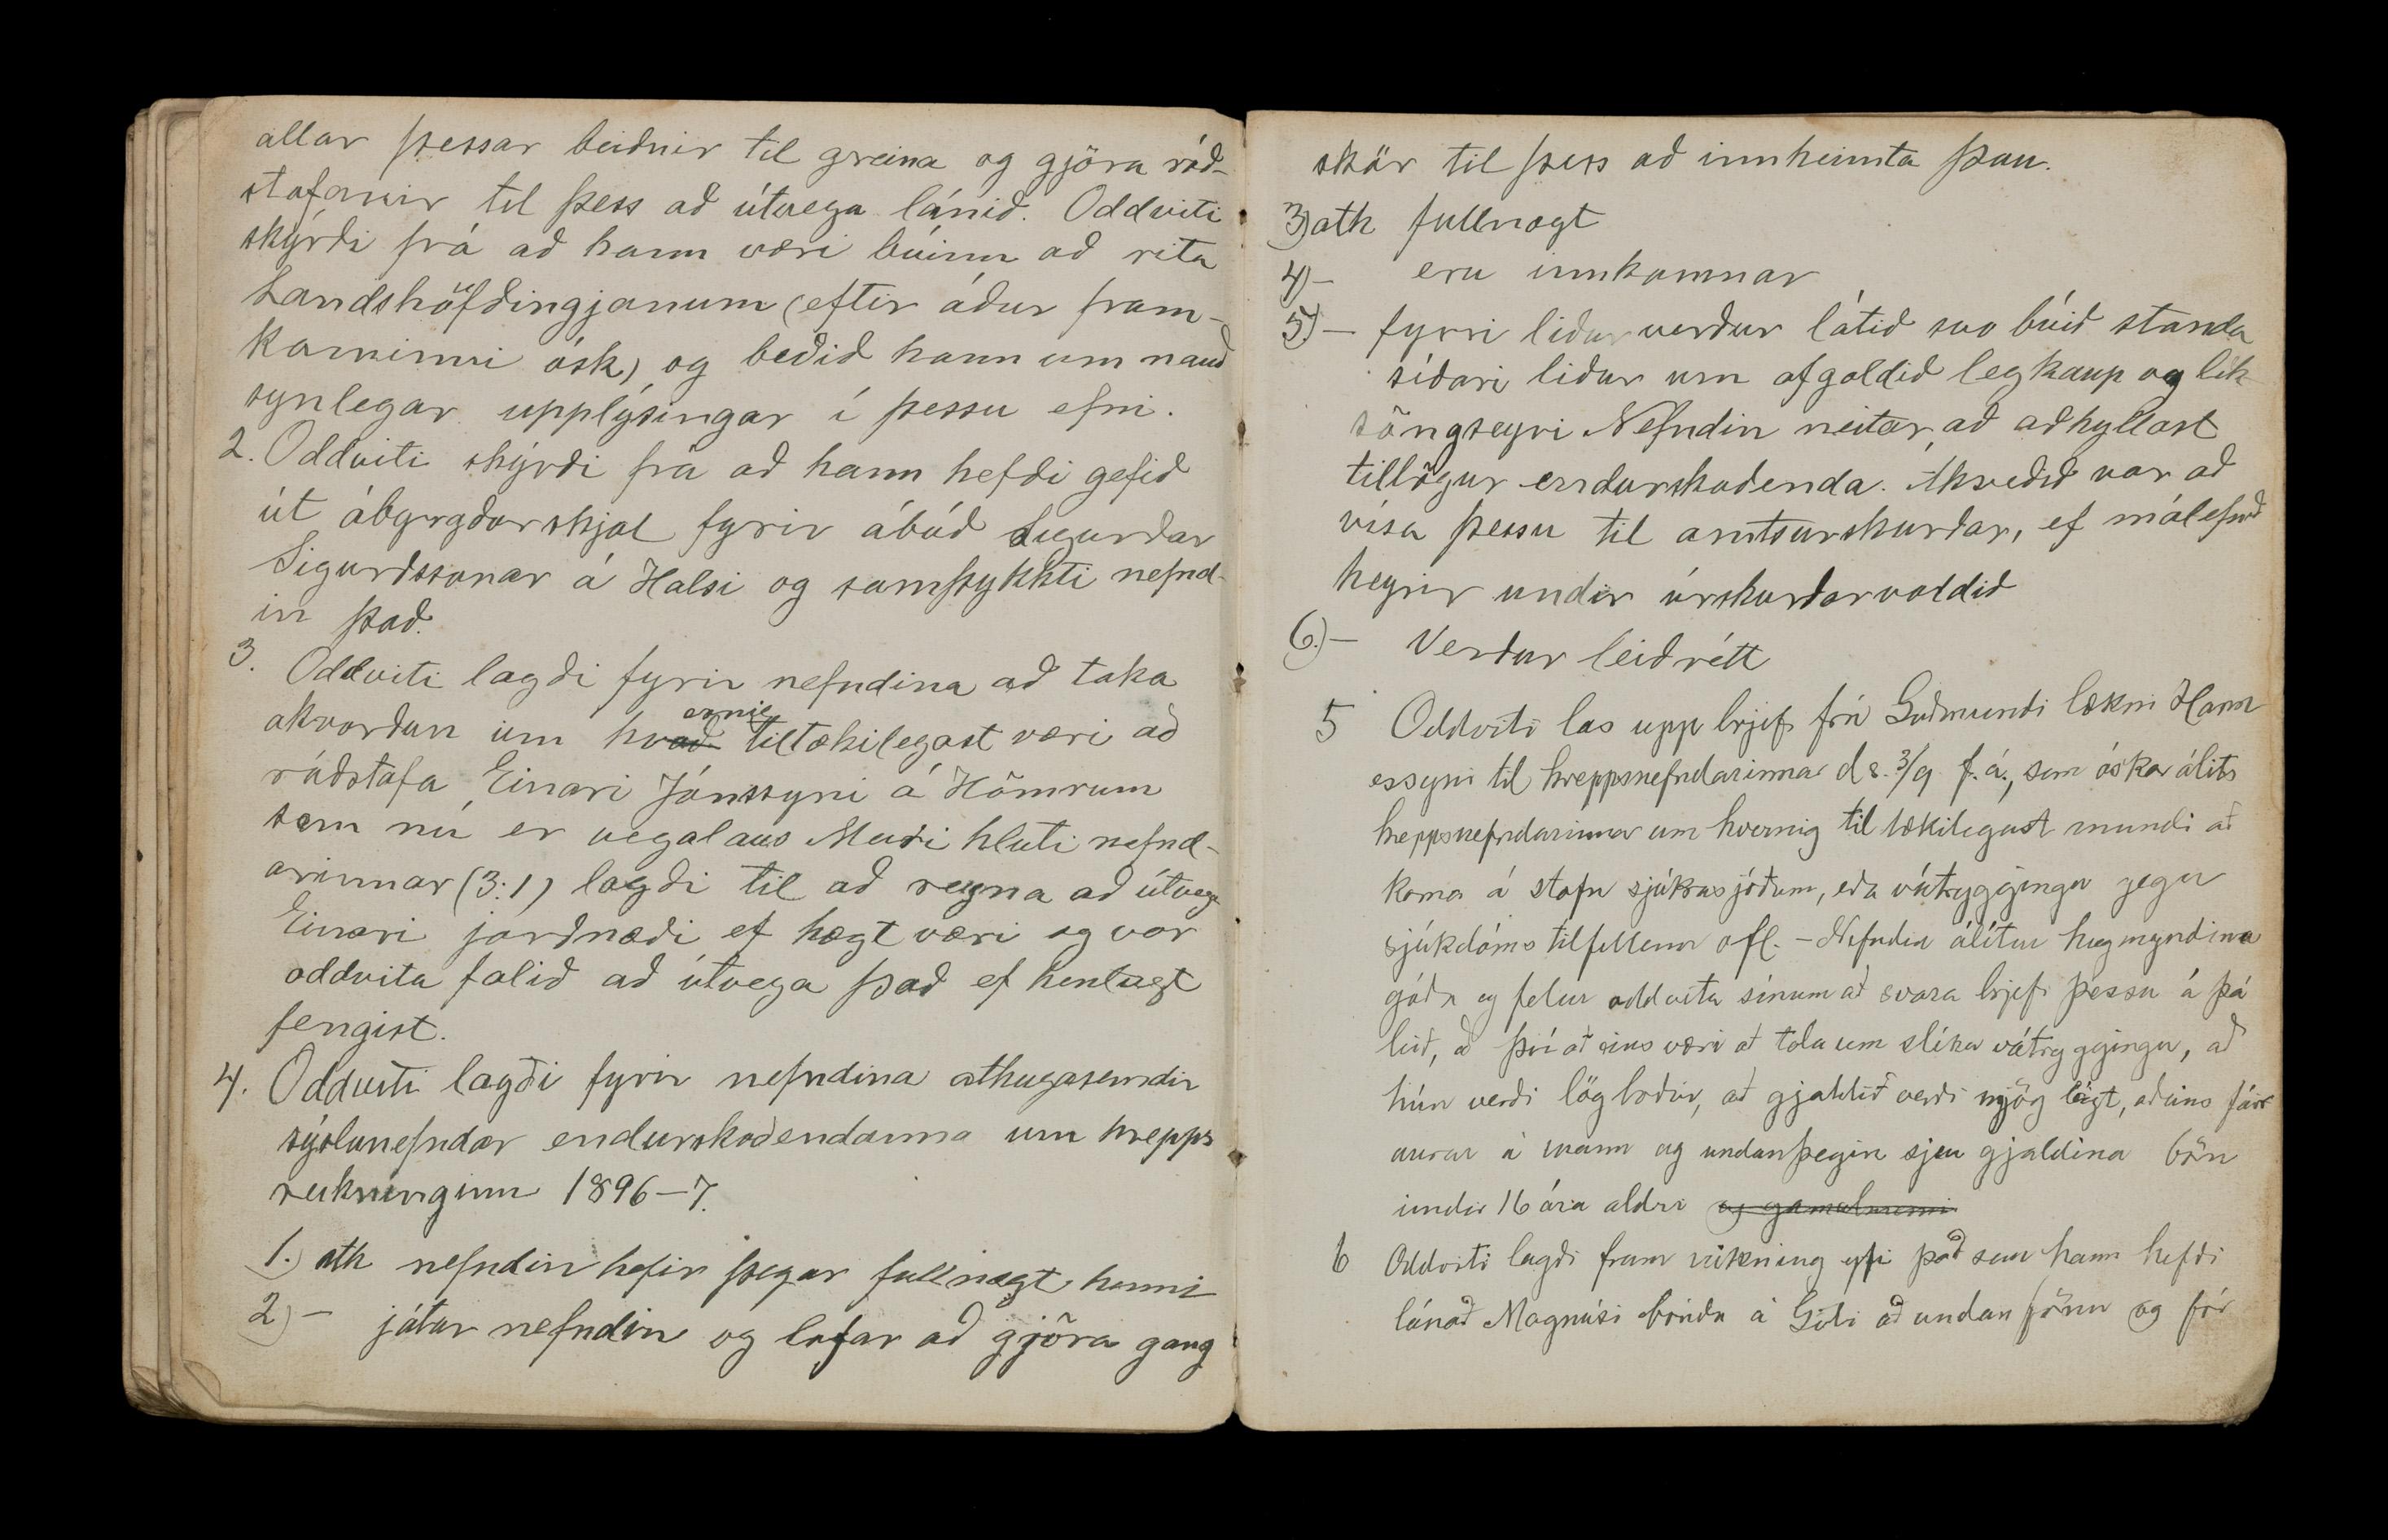 allar þessar beiðnir til greina og gjöra ráð-
stafanir til þess að útvega lánið. Oddviti
skýrði frá að hann væri búinn að rita
Landshöfðingjanum (eftir áður fram-
kominni ósk) og beðið hann um nauð
synlegar upplýsingar í þessu efni.
2. Oddviti skýrði frá að hann hefði gefið
út ábyrgðarskjal fyrir ábúð Sigurðar
Sigurðssonar á Halsi og samþykkti nefnd-
in það.
3. Oddviti lagði fyrir nefndina að taka
akvorðun um hvað ernig tiltækilegast væri að
ráðstafa Einari Jónssyni á Hömrum
sem nú er vegalaus Meiri hluti nefnd-
arinnar (3:1) lagði til að reyna að útvega
Einari jarðnæði ef hægt væri og var
oddvita falið að útvega það ef hentugt
fengist.
4. Oddviti lagði fyrir nefndina athugasemdir
sýslunefndar endurskoðendanna um hrepps
reikninginn 1896-7.
1.) ath nefndin hefir þegar fullnægt henni
2) - játar nefndin og lofar að gjöra gang
skör til þess að innheimta þau.
3) ath fullnægt
4) - eru innkomnar
5.) - fyrri liður verður látið svo búið standa
síðari liður um afgoldið legkaup og lík
söngseyri Nefndin neitar að aðhyllast
tillögur endurskoðenda. Ákveðið var að
vísa þessu til amtsúrskurðar, ef málefnið
heyrir undir úrskurðarvaldið
6.) - Verður leiðrétt
5 Oddviti las upp brjef frá Guðmundi lækni Hann
essyni til hreppsnefndarinnar ds. 3/9 f.á., sem óskar álits
hreppsnefndarinnar um hvernig til tækilegast mundi að
koma á stofn sjúkrasjóðum, eða vátryggingu gegn
sjúkdóms tilfellum ofl. - Nefndin álítur hugmyndina
góða og felur oddvita sínum að svara brjefi þessu á þá
leið, að því að eins væri að tala um slíka vátryggingu, að
hún verði lögboðin, að gjaldið verði mjög lágt, aðeins fáir
aurar á mann og undanþegin sjeu gjaldina börn
undir 16 ára aldri og gamalmenni
6 Oddviti lagði fram reikning yfir það sem hann hefði
lánað Magnúsi bónda á Gili að undan förnu og fór